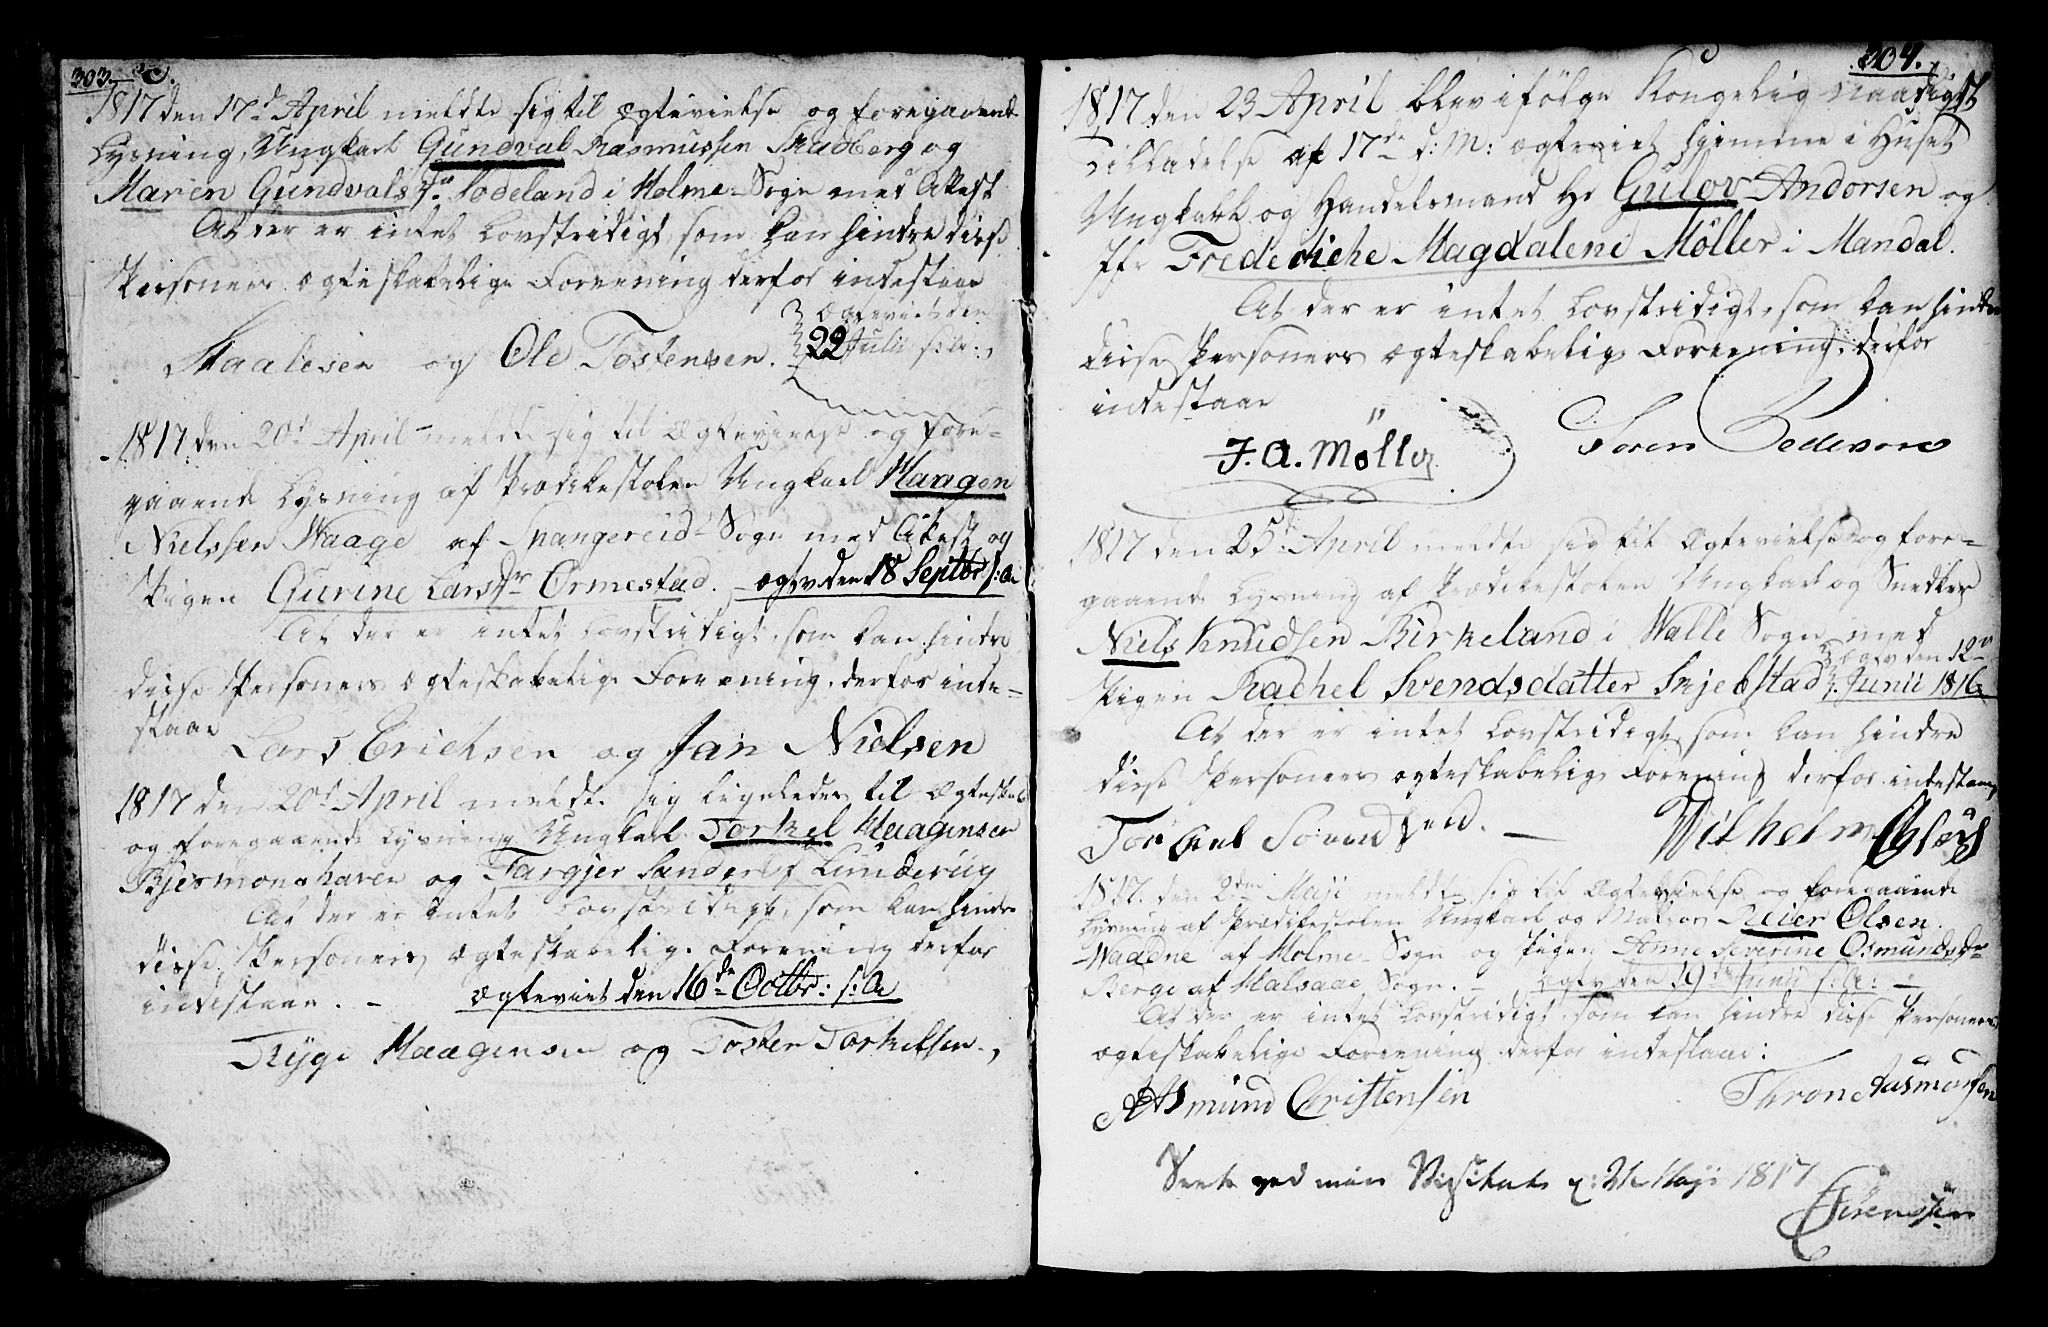 303.
1817 den 17de April meldte sig til Ægtevielse og foregaaende
Lysning, Ungkarl Gundval Rasmussen Stadberg og
Maren Gundvalsdr Sodeland i Holme-Sogn med Attest
At der er intet Lovstridigt, som kan hindre disse
Personers ægteskabelige Foreening derfor indestaae
Ægteviet den
Staalesen og Ole Tostensen. 22 Julii s: A:
1817 den 20de April meldte sig til Ægtevielse og fore-
gaaende Lysning af Prædikestolen Ungkarl Haagen
Nielssen Waage af Spangereid-Sogn med Attest og
Pigen Gurine Larsdr Ormestad. - ægtv den 18 Septbr s: A
At der er intet Lovstridigt, som kan hindre
disse Personers ægteskabelige Foreening, derfor inde-
staae
Lars Erichsen og Jan Nielsen
1817 den 20de April meldte sig ligeledes til Ægteskab
og foregaaende Lysning Ungkarl Torkel Haagensen
Bjermonshaven og Targjer Sandersd Lunderüg
At der er intet Lovstridigt, som kan hindre
disse Personers ægteskabelige Foreening derfor
indestaae. - Ægteviet den 16de Octbr: s: A
Tryge Haagensen og Tosten Torkelsen.
304.
1817 den 23 April blev ifølge Kongelig naadigst
Tilladelse af 17de d: M: ægteviet hjemme i Huset
Ungkarl og Handelsmand Hr Gulov Andorsen og
Jfr Frederiche Magdalene Möller i Mandal.
At der er intet Lovstridigt, som kan hindre
disse Personers ægteskabelige Foreening, derfor
indestaae
J. A. Möller Søren Pedersen
1817 den 25de April meldte sig til Ægtevielse og fore-
gaaende Lysning af Prædikestolen Ungkarl og Snedker
Niels Knudsen Birkeland i Walle Sogn med
Ægtv den 12te
Pigen Rachel Svendsdatter Skjebstad Junii 1816
At der er intet Lovstridigt som kan hindre
disse Personers ægteskabelige Forening derfor indestaae
Torkel Sovendsen. Wilhelm
1817. den 2den Maji meldte sig til Ægtevielse og foregaaende
Lysning af Prædikestolen Ungkarl og Matros Reier Olsen
Waadne af Holme-Sogn og Pigen Anne Severine Osmundsdr
Berge af Halsaae Sogn. - Ægtv den 19de Junii s: A: -
At der er intet Lovstridigt, som kan hindre disse Personers
ægteskabelige Foreening derfor indestaae:
Asmund Christensen Throne Rasmussen
Seet ved min Visitats d: 21 Maji 1817
Sörenssen